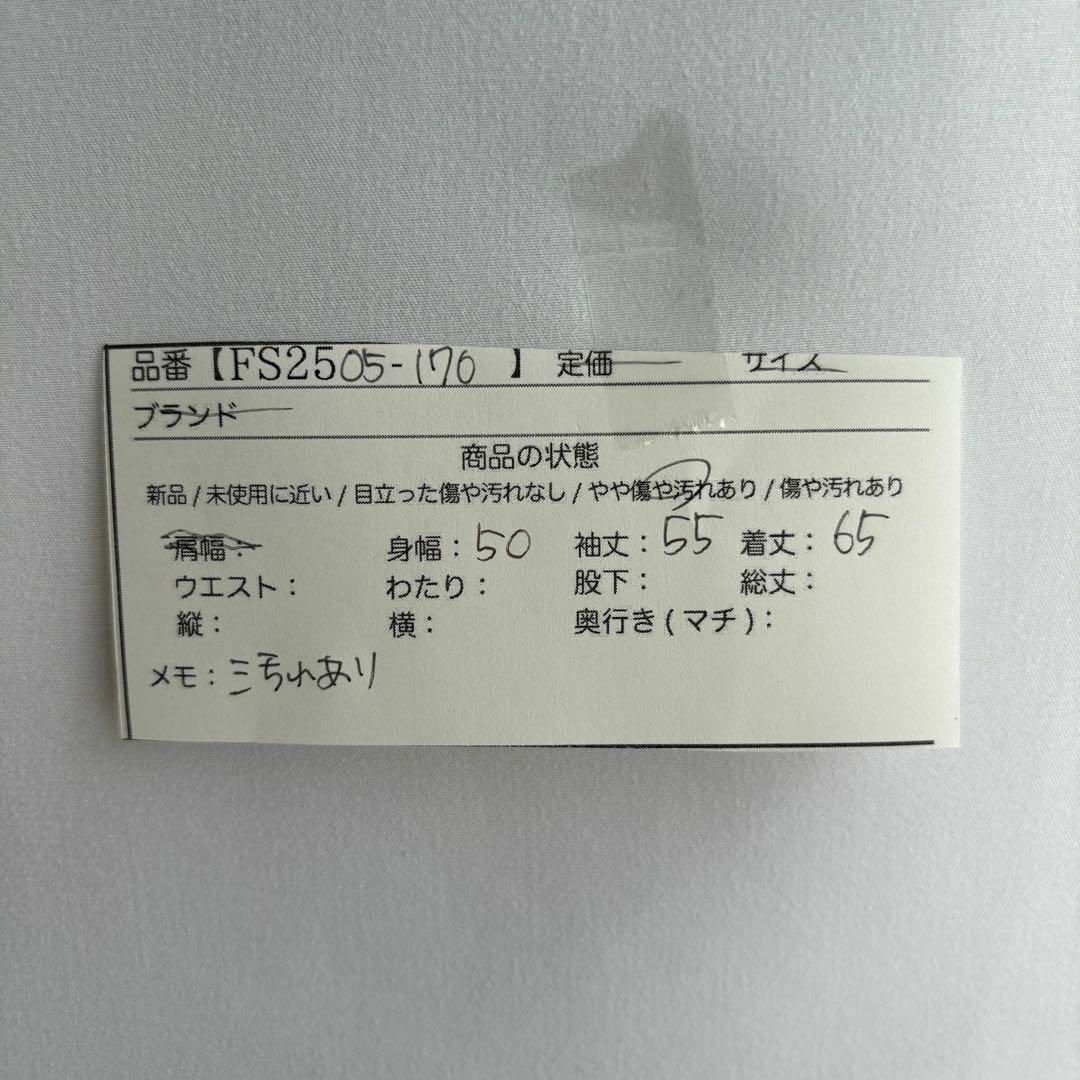 品番【FS2505-170 】 定価 サイズ
ブランド
商品の状態
新品 / 未使用に近い / 目立った傷や汚れなし / やや傷や汚れあり / 傷や汚れあり
肩幅： 身幅：50 袖丈：55 着丈：65
ウエスト： わたり： 股下： 総丈：
縦： 横： 奥行き ( マチ )：
メモ：汚れあり